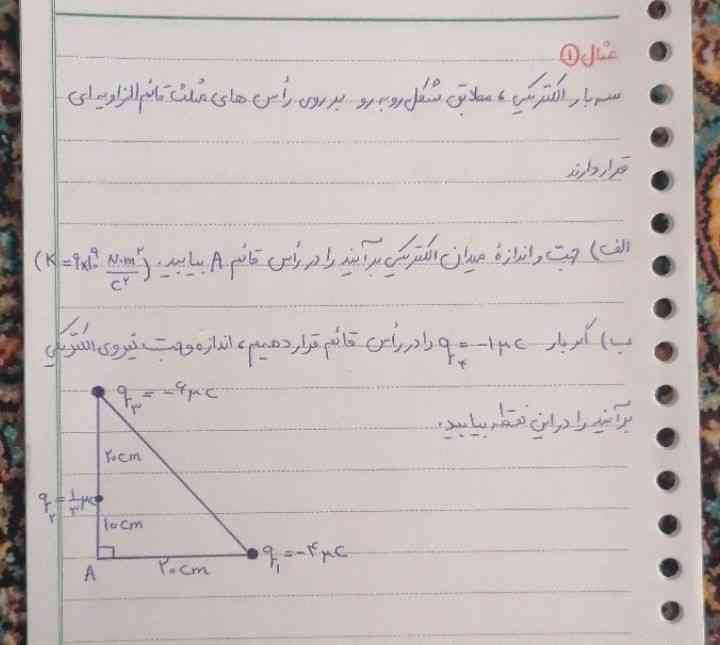 مثال ①
سه بار الکتریکی، مطابق شکل روبه رو بر روی رأس های مثلث قائم الزاویه ای
قرار دارند
الف) جهت و اندازهٔ میدان الکتریکی برآیند را در رأس قائم A بیابید. (K = ۹×۱۰^۹ N.m^۲/C^۲)
ب) اگر بار q_۴ = -۱μc را در رأس قائم قرار دهیم، اندازه و جهت نیروی الکتریکی
برآیند را در این نقطه بیابید.
q_۳ = -۶μc
۲۰cm
q_۲ = ۱/۳ μc
۱۰cm
q_۱ = -۴μc
A
۲۰cm